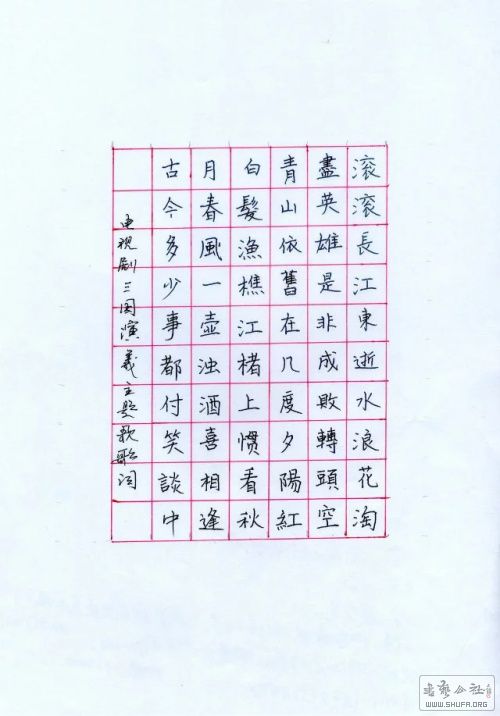 滚滚長江東逝水浪花淘
盡英雄是非成敗轉頭空
青山依舊在几度夕陽紅
白髮漁樵江楮上惯看秋
月春風一壺浊酒喜相逢
古今多少事都付笑談中
电视剧三国演義主题歌歌词
书艺公社
WWW.SHUFA.ORG